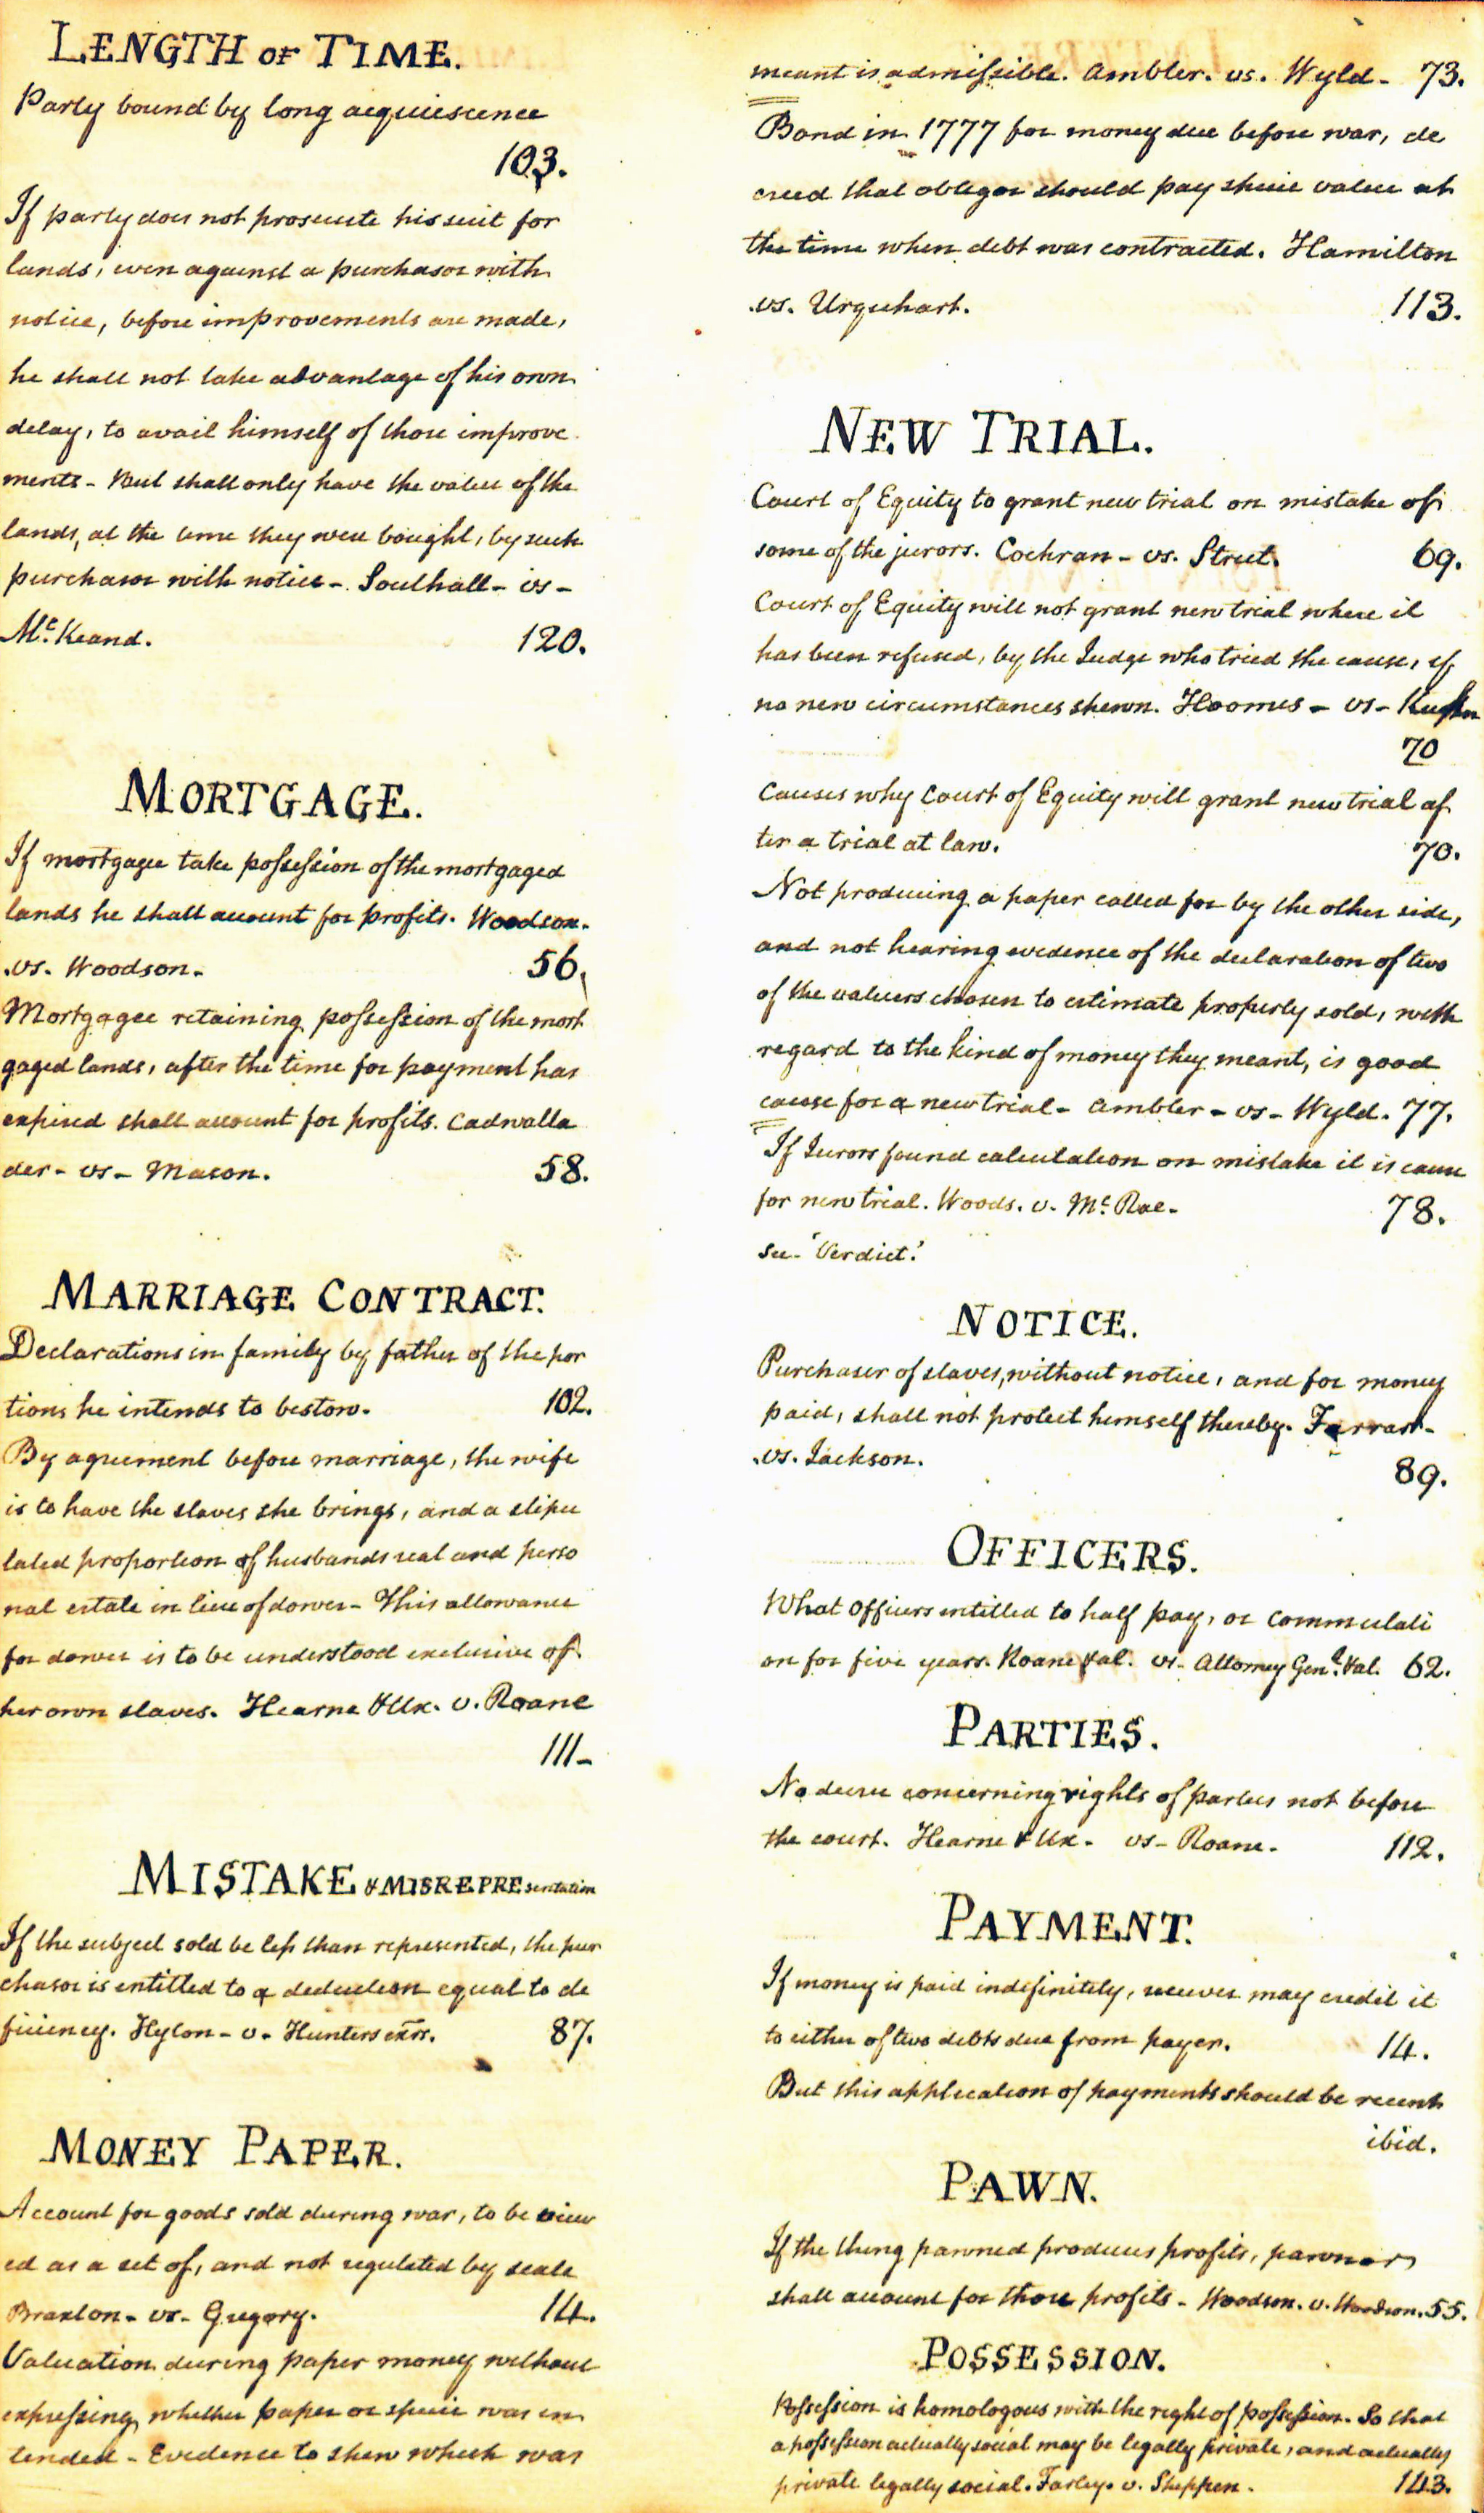 LENGTH OF TIME.
Party bound by long acquiescence
103.
If party does not prosecute his suit for
lands, even against a purchasor with
notice, before improvements are made,
he shall not take advantage of his own
delay, to avail himself of those improve
ments - But shall only have the value of the
lands, at the time they were bought, by such
purchasor with notice - Southall - vs -
Mc. Keand. 120.
MORTGAGE.
If mortgagee take possession of the mortgaged
lands he shall account for profits. Woodson.
.vs. Woodson. 56.
Mortgagee retaining possession of the mort
gaged lands, after the time for payment has
expired shall account for profits. Cadwalla
der - vs - Mason. 58.
MARRIAGE CONTRACT.
Declarations in family by father of the por
tions he intends to bestow. 102.
By agreement before marriage, the wife
is to have the slaves she brings, and a stipu
lated proportion of husbands real and perso
nal estate in lieu of dower - This allowance
for dower is to be understood exclusive of
her own slaves. Hearne & Ux. v. Roane
111 -
MISTAKE & MISREPREsentation
If the subject sold be less than represented, the pur
chasor is entitled to a deduction equal to de
ficiency. Hylton - v. Hunters exrs. 87.
MONEY PAPER.
Account for goods sold during war, to be view
ed as a set of, and not regulated by scale
Braxton - vs - Gregory. 14.
Valuation during paper money without
expressing whether paper or specie was in
tended - Evidence to shew which was
meant is admissible. Ambler. vs. Wyld - 73.
Bond in 1777 for money due before war, de
creed that obligor should pay specie value at
the time when debt was contracted. Hamilton
.vs. Urquhart. 113.
NEW TRIAL.
Court of Equity to grant new trial on mistake of
some of the jurors. Cochran - vs. Street. 69.
Court of Equity will not grant new trial where it
has been refused, by the Judge who tried the cause, if
no new circumstances shewn. Hoomes - vs -
70
Causes why Court of Equity will grant new trial af
ter a trial at law. 70.
Not producing a paper called for by the other side,
and not hearing evidence of the declaration of two
of the valuers chosen to estimate property sold, with
regard to the kind of money they meant, is good
cause for a new trial - Ambler - vs - Wyld. 77.
If Jurors found calculation on mistake it is cause
for new trial. Woods. v. Mc. Rae - 78.
See - 'Verdict.'
NOTICE.
Purchaser of slaves, without notice, and for money
paid, shall not protect himself thereby. Farrar -
.vs. Jackson. 89.
OFFICERS.
What officers entitled to half pay, or commutati
on for five years. Roane & al. vs - Attorney Genl. & al. 62.
PARTIES.
No decree concerning rights of parties not before
the court. Hearne & Ux - vs - Roane - 112.
PAYMENT.
If money is paid indefinitely, receiver may credit it
to either of two debts due from payer. 14.
But this application of payments should be recent
ibid.
PAWN.
If the thing pawned produces profits, pawnor
shall account for those profits - Woodson. v. Woodson. 55.
POSSESSION.
Possession is homologous with the right of possession. So that
a possession actually social may be legally private, and actually
private legally social. Farley. v. Shippen. 143.